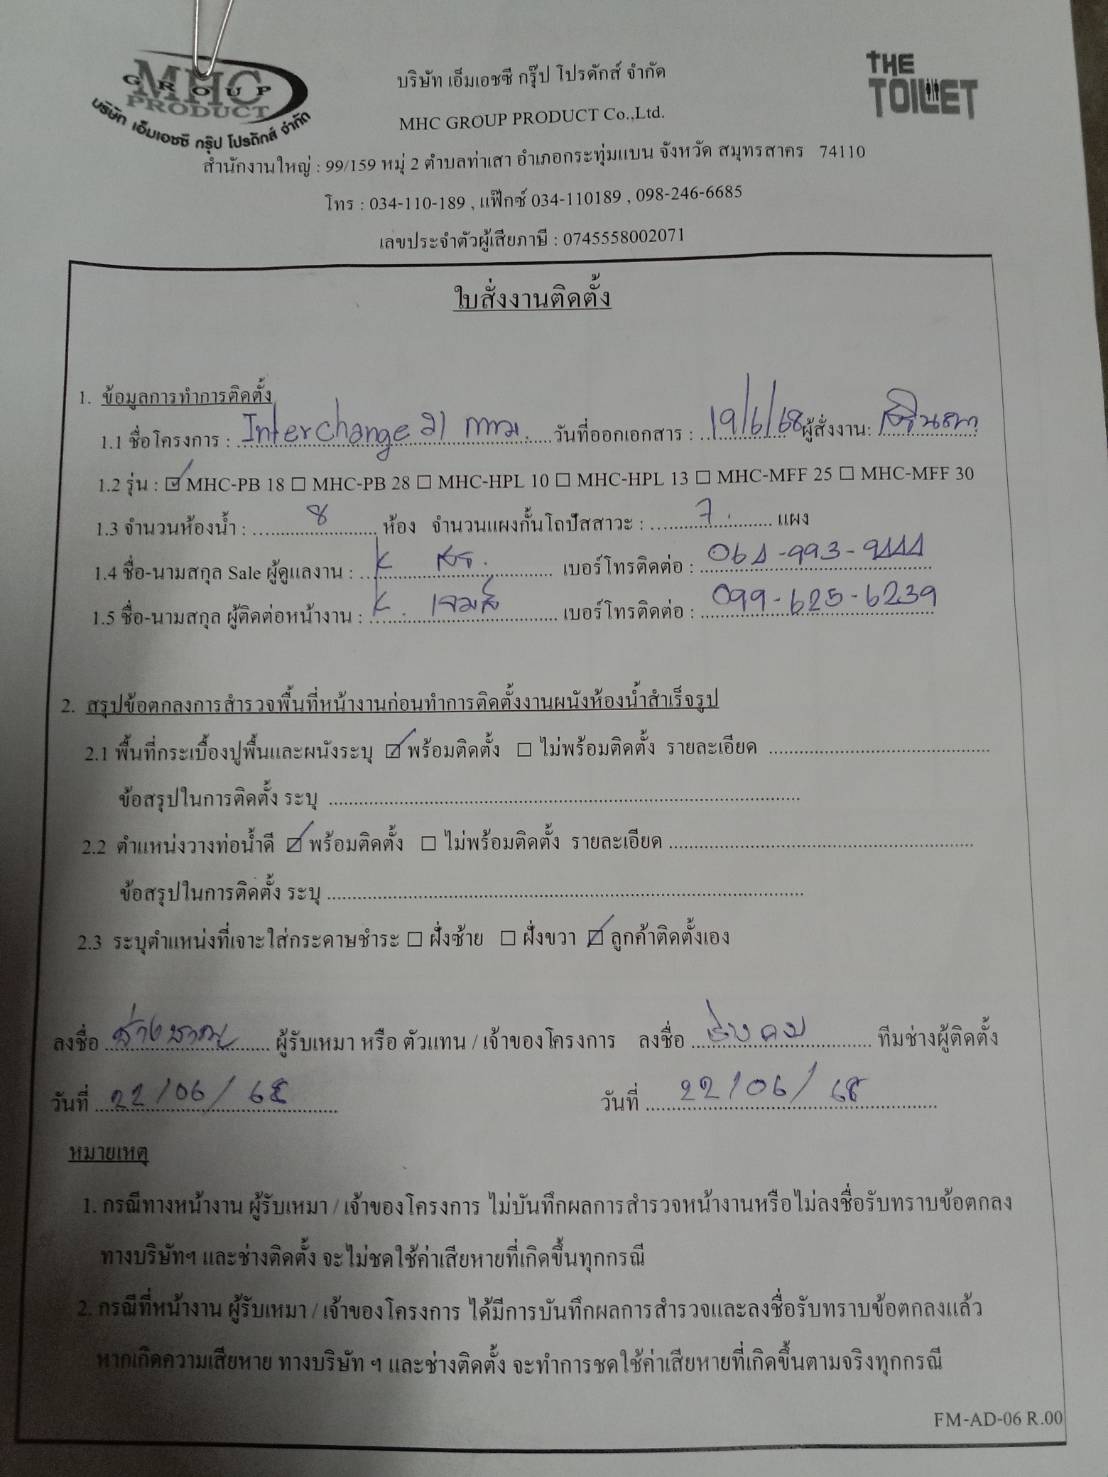 MHC
GROUP
PRODUCT
บริษัท เอ็มเอชซี กรุ๊ป โปรดักส์ จำกัด
THE
TOILET
บริษัท เอ็มเอชซี กรุ๊ป โปรดักส์ จำกัด
MHC GROUP PRODUCT Co.,Ltd.
สำนักงานใหญ่ : 99/159 หมู่ 2 ตำบลท่าเสา อำเภอกระทุ่มแบน จังหวัด สมุทรสาคร 74110
โทร : 034-110-189 , แฟ๊กซ์ 034-110189 , 098-246-6685
เลขประจำตัวผู้เสียภาษี : 0745558002071
ใบสั่งงานติดตั้ง
1. ข้อมูลการทำการติดตั้ง
1.1 ชื่อโครงการ : Interchange 21 วันที่ออกเอกสาร : 19/6/68 ผู้สั่งงาน:
1.2 รุ่น : ☑ MHC-PB 18 □ MHC-PB 28 □ MHC-HPL 10 □ MHC-HPL 13 □ MHC-MFF 25 □ MHC-MFF 30
1.3 จำนวนห้องน้ำ : 8 ห้อง จำนวนแผงกั้นโถปัสสาวะ : 7. แผง
1.4 ชื่อ-นามสกุล Sale ผู้ดูแลงาน : K เบอร์โทรติดต่อ : 064-993-9444
1.5 ชื่อ-นามสกุล ผู้ติดต่อหน้างาน : K. เจมส์ เบอร์โทรติดต่อ : 099-625-6239
2. สรุปข้อตกลงการสำรวจพื้นที่หน้างานก่อนทำการติดตั้งงานผนังห้องน้ำสำเร็จรูป
2.1 พื้นที่กระเบื้องปูพื้นและผนังระบุ ☑ พร้อมติดตั้ง □ ไม่พร้อมติดตั้ง รายละเอียด
ข้อสรุปในการติดตั้ง ระบุ
2.2 ตำแหน่งวางท่อน้ำดี ☑ พร้อมติดตั้ง □ ไม่พร้อมติดตั้ง รายละเอียด
ข้อสรุปในการติดตั้ง ระบุ
2.3 ระบุตำแหน่งที่เจาะใส่กระดาษชำระ □ ฝั่งซ้าย □ ฝั่งขวา ☑ ลูกค้าติดตั้งเอง
ลงชื่อ ผู้รับเหมา หรือ ตัวแทน / เจ้าของโครงการ ลงชื่อ ทีมช่างผู้ติดตั้ง
วันที่ 22/06/68 วันที่ 22/06/68
หมายเหตุ
1. กรณีทางหน้างาน ผู้รับเหมา / เจ้าของโครงการ ไม่บันทึกผลการสำรวจหน้างานหรือไม่ลงชื่อรับทราบข้อตกลง
ทางบริษัทฯ และช่างติดตั้ง จะไม่ชดใช้ค่าเสียหายที่เกิดขึ้นทุกกรณี
2. กรณีที่หน้างาน ผู้รับเหมา / เจ้าของโครงการ ได้มีการบันทึกผลการสำรวจและลงชื่อรับทราบข้อตกลงแล้ว
หากเกิดความเสียหาย ทางบริษัท ฯ และช่างติดตั้ง จะทำการชดใช้ค่าเสียหายที่เกิดขึ้นตามจริงทุกกรณี
FM-AD-06 R.00